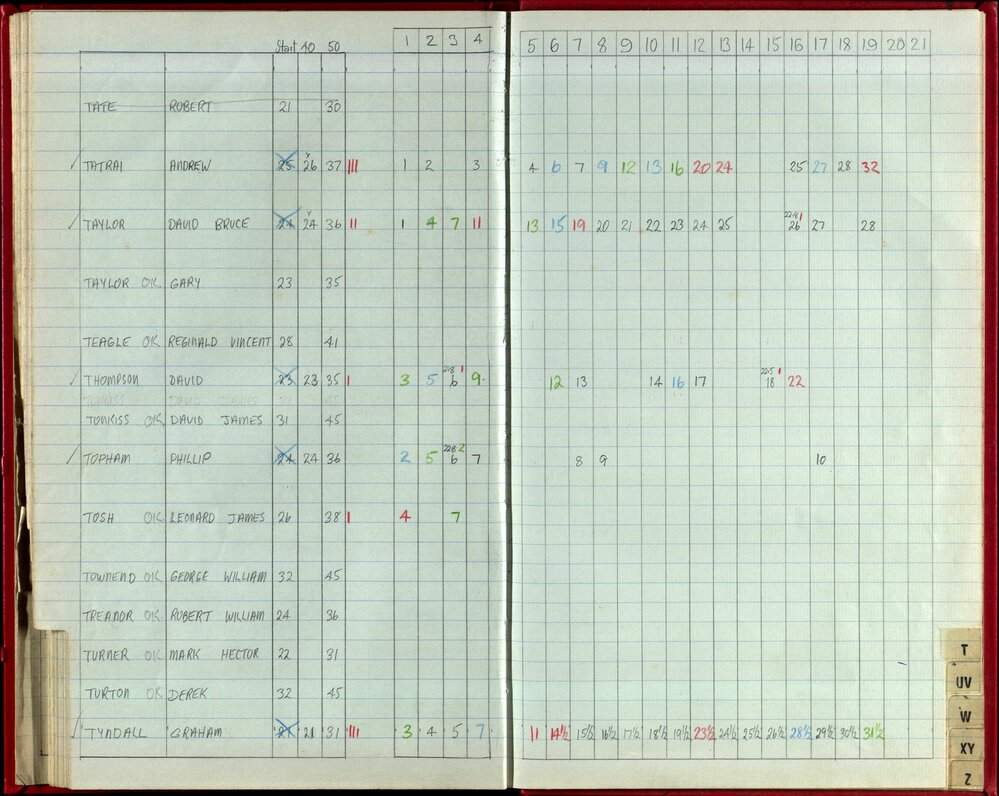 Start 40 50 1 2 3 4 5 6 7 8 9 10 11 12 13 14 15 16 17 18 19 20 21
TATE ROBERT 21 30
✓ TATRAI ANDREW 25 26 37 III 1 2 3 4 6 7 9 12 13 16 20 24 25 27 28 32
✓ TAYLOR DAVID BRUCE 24 24 36 II 1 4 7 11 13 15 19 20 21 22 23 24 25 26 27 28
TAYLOR OK GARY 23 35
TEAGLE OK REGINALD VINCENT 28 41
✓ THOMPSON DAVID 23 23 35 I 3 5 6 9 12 13 14 16 17 18 22
TONKISS OK DAVID JAMES 31 45
✓ TOPHAM PHILLIP 24 24 36 2 5 6 7 8 9 10
TOSH OK LEONARD JAMES 26 38 I 4 7
TOWNEND OK GEORGE WILLIAM 32 45
TREANOR OK ROBERT WILLIAM 24 36
TURNER OK MARK HECTOR 22 31
TURTON OK DEREK 32 45
✓ TYNDALL GRAHAM 21 21 31 III 3 4 5 7 11 14½ 15½ 16½ 17½ 18½ 19½ 23½ 24½ 25½ 26½ 28½ 29½ 30½ 31½
T
UV
W
XY
Z